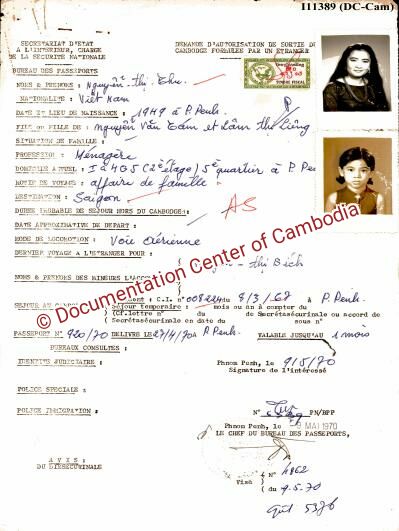 111389 (DC-Cam)
SECRETARIAT D'ETAT
A L'INTERIEUR, CHARGE
DE LA SECURITE NATIONALE
DEMANDE D'AUTORISATION DE SORTIE DU
CAMBODGE FORMULEE PAR UN ETRANGER
BUREAU DES PASSEPORTS
NOMS & PRENOMS : Nguyễn thị Thu
NATIONALITE : Việt Nam
DATE ET LIEU DE NAISSANCE : 1949 à P. Penh.
FILS ou FILLE DE : Nguyễn Văn Tám et Lâm thị Liêng
SITUATION DE FAMILLE :
PROFESSION : Ménagère
DOMICILE ACTUEL : 5è quartier à P. Pe
MOTIF DE VOYAGE : affaire de famille
DESTINATION : Saigon
DUREE PROBABLE DE SEJOUR HORS DU CAMBODGE :
AS
DATE APPROXIMATIVE DE DEPART :
MODE DE LOCOMOTION : Voie Aérienne
DERNIER VOYAGE A L'ETRANGER POUR :
thị Bích
NOMS & PRENOMS DES MINEURS
C.I. n° 008224 du 8/3/68 à P. Penh.
SEJOUR AU
Séjour temporaire : mois ou an à compter du
(Cf. lettre n° du de Secrétasécurinale ou accord de
Secrétasécurinale en date du sous n°
PASSEPORT N° 920/70 DELIVRE LE 27/4/70 à P. Penh. VALABLE JUSQU'AU 1 mois
BUREAUX CONSULTES :
IDENTITE JUDICIAIRE :
Phnom Penh, le 9/5/70
Signature de l'intéressé
POLICE SPECIALE :
POLICE IMMIGRATION :
N° PN/BPP
Phnom Penh, le 9 MAI 1970
LE CHEF DU BUREAU DES PASSEPORTS,
AVIS :
DU DIRSECURINALE
Visa
( N° 4862
( du 9.5.70
© Documentation Center of Cambodia